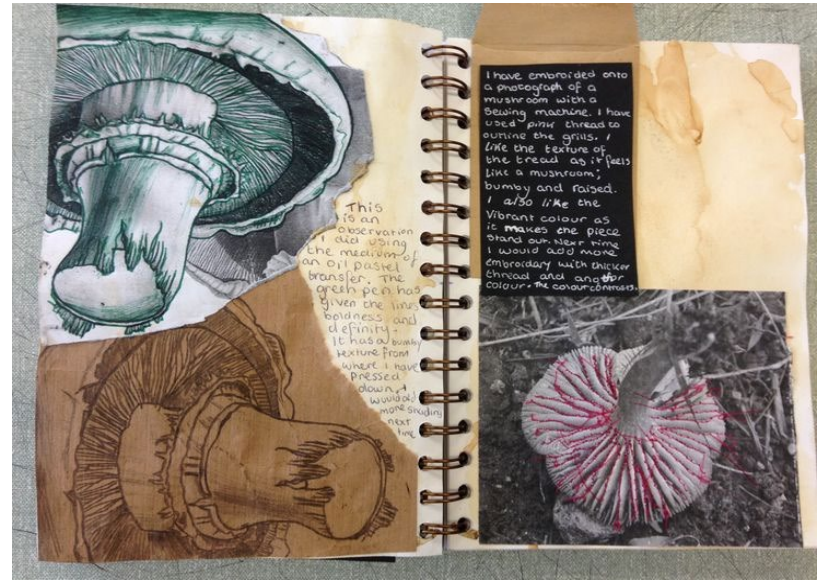 This
is an
observation
I did using
the medium of
an oil pastel
transfer. The
green pen has
given the lines
boldness and
definity.
It has a bumby
texture from
where I have
pressed
down. I
would add
more shading
next
time
I have embroided onto
a photograph of a
mushroom with a
sewing machine. I have
used pink thread to
outline the grills. I
like the texture of
the tread as it feels
like a mushroom;
bumby and raised.
I also like the
vibrant colour as
it makes the piece
stand out. Next time
I would add more
embroidary with thicker
thread and another
colour. The colour contrasts.